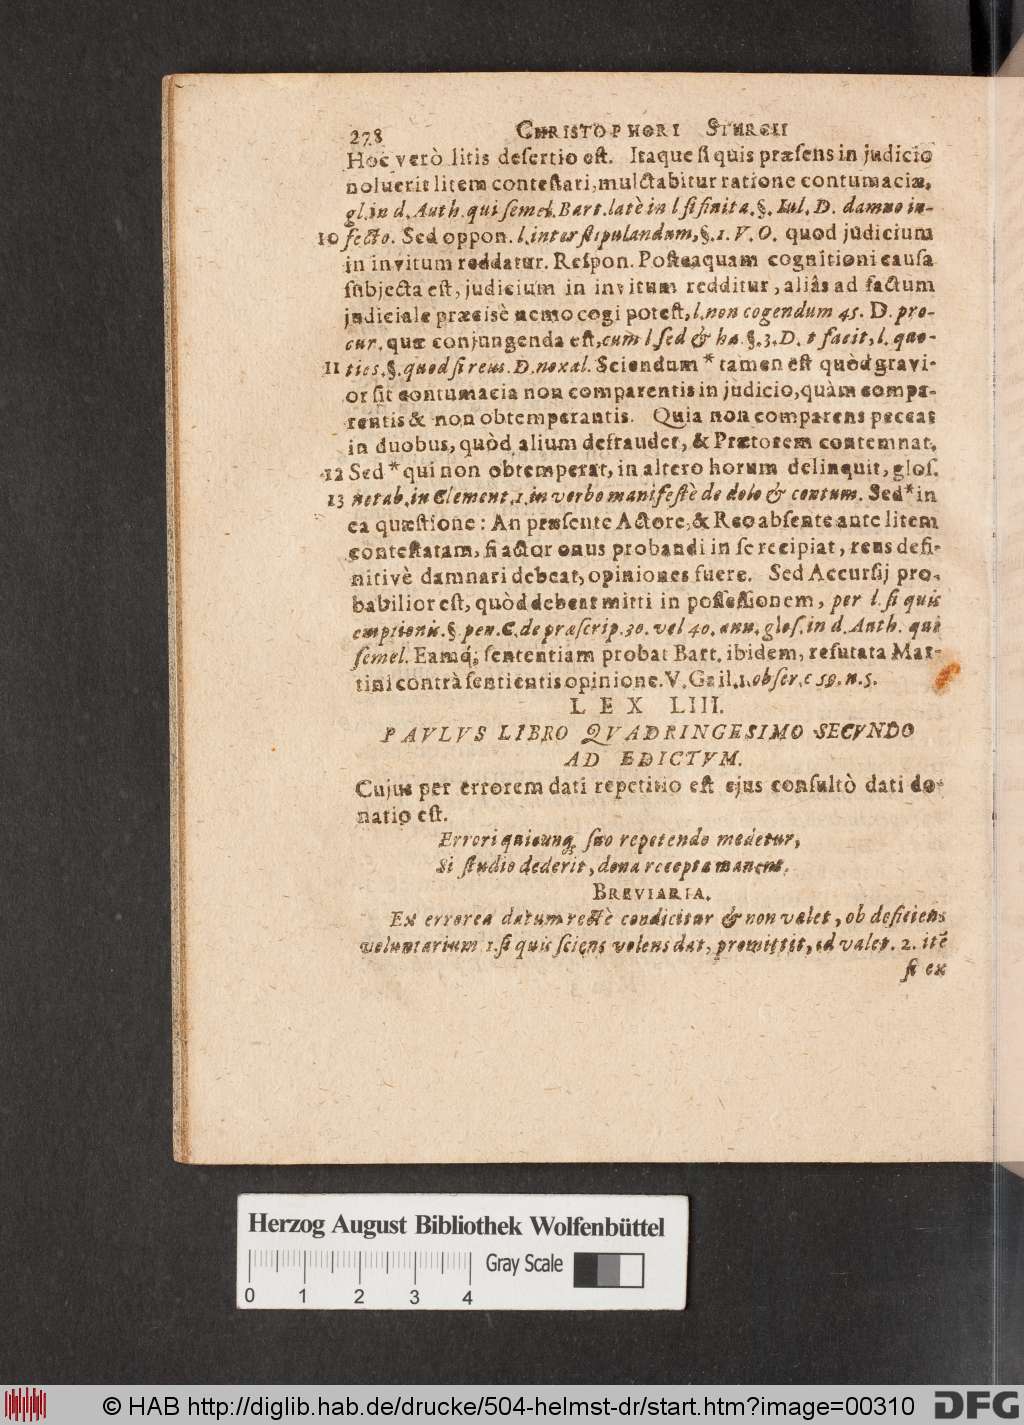 278 CHRISTOPHORI STURCII
Hoc verò litis desertio est. Itaque si quis præsens in judicio
noluerit litem contestari, mulctabitur ratione contumaciæ,
gl. in d. Auth. qui semel. Bart. latè in l si finita. §. Iul. D. damno in-
10 fecto. Sed oppon. l. inter stipulandum, §. 1. V. O. quod judicium
in invitum reddatur. Respon. Posteaquam cognitioni causa
subjecta est, judicium in invitum redditur, aliâs ad factum
judiciale præcisè nemo cogi potest, l. non cogendum 45. D. pro-
cur. quæ conjungenda est, cum l sed & ha. §. 3. D. t facit, l. quo-
11 ties. §. quod si reus. D. noxal. Sciendum * tamen est quòd gravi-
or sit contumacia non comparentis in judicio, quàm compa-
rentis & non obtemperantis. Quia non comparens peccat
in duobus, quòd alium defraudet, & Prætorem contemnat.
12 Sed * qui non obtemperat, in altero horum delinquit, glos.
13 notab. in Clement. 1. in verbo manifestè de dolo & contum. Sed * in
ea quæstione: An præsente Actore, & Reo absente ante litem
contestatam, si actor onus probandi in se recipiat, reus defi-
nitivè damnari debeat, opiniones fuere. Sed Accursij pro-
babilior est, quòd debeat mitti in possessionem, per l. si quis
emptionis. §. pen. C. de præscrip. 30. vel 40. ann. glos. in d. Auth. qui
semel. Eamq́; sententiam probat Bart. ibidem, refutata Mar-
tini contrà sentientis opinione. V. Gail. 1. obser. c 59. n. 5.
LEX LIII.
PAVLVS LIBRO QVADRINGESIMO SECVNDO
AD EDICTVM.
Cujus per errorem dati repetitio est ejus consultò dati do-
natio est.
Errori quicunq; suo repetendo medetur,
Si studio dederit, dona recepta manent.
BREVIARIA.
Ex errorea datum rectè condicitur & non valet, ob deficiens
voluntarium 1. si quis sciens volens dat, promittit, id valet. 2. itē
si ex
Herzog August Bibliothek Wolfenbüttel
Gray Scale
0 1 2 3 4
© HAB http://diglib.hab.de/drucke/504-helmst-dr/start.htm?image=00310
DFG